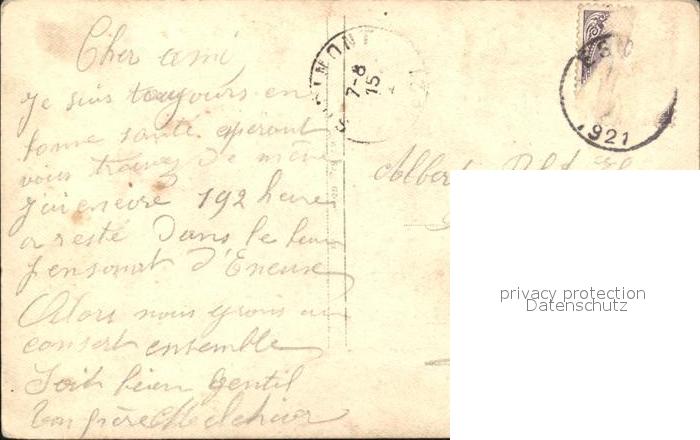 Cher ami
Je suis toujours en
bonne santé esperont
vous trouvez de même
j'ai encore 192 heure
a resté dans le beau
pensonat d'Eneuse
Alors nous yrons au
consert ensemble
Soit bien gentil
Ton frère Melchior
Albert
7-8
15
921
privacy protection
Datenschutz